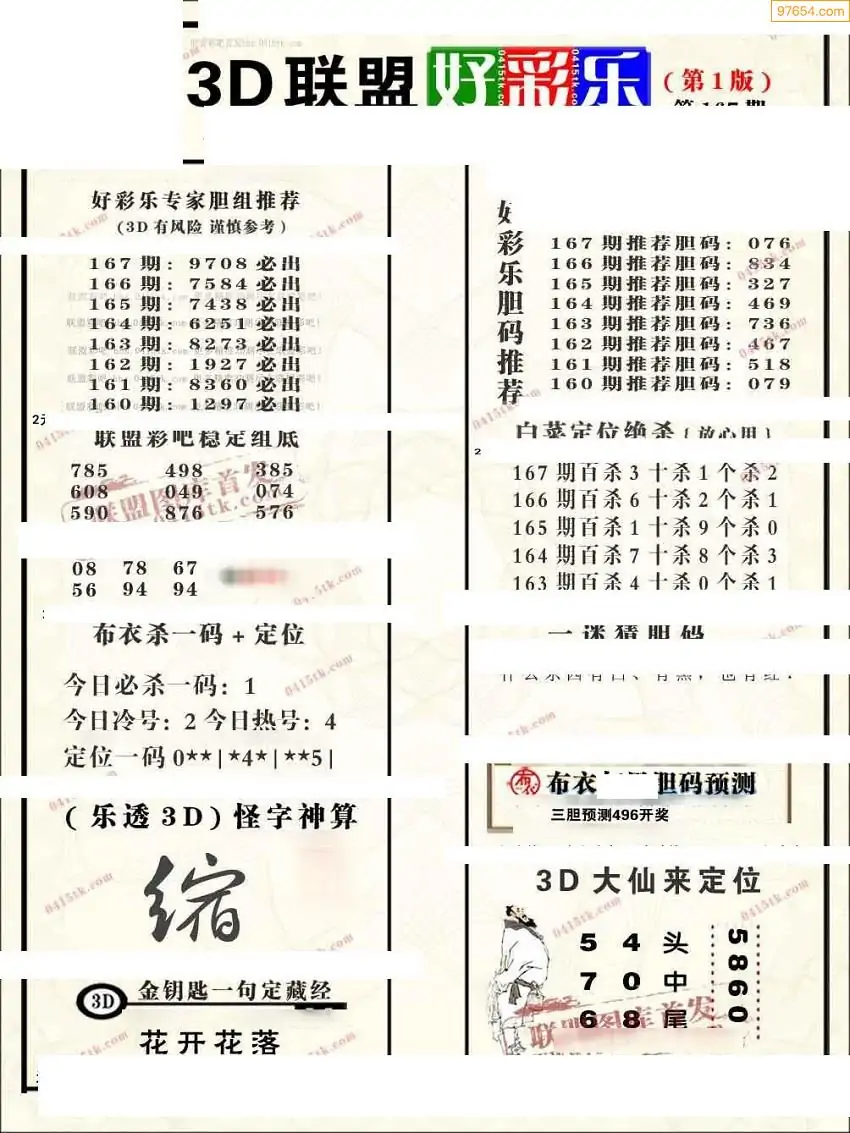 97654.com
3D联盟好彩乐
(第1版)
好彩乐专家胆组推荐
(3D有风险 谨慎参考)
167期: 9708必出
166期: 7584必出
165期: 7438必出
164期: 6251必出
163期: 8273必出
162期: 1927必出
161期: 8360必出
160期: 1297必出
联盟彩吧稳定组底
785 498 385
608 049 074
590 876 576
08 78 67
56 94 94
布衣杀一码+定位
今日必杀一码: 1
今日冷号: 2 今日热号: 4
定位一码 0**|*4*|**5|
(乐透3D)怪字神算
缩
3D 金钥匙一句定藏经
花开花落
好彩乐胆码推荐
167期推荐胆码: 076
166期推荐胆码: 834
165期推荐胆码: 327
164期推荐胆码: 469
163期推荐胆码: 736
162期推荐胆码: 467
161期推荐胆码: 518
160期推荐胆码: 079
白菜定位绝杀(放心用)
167期百杀3十杀1个杀2
166期百杀6十杀2个杀1
165期百杀1十杀9个杀0
164期百杀7十杀8个杀3
163期百杀4十杀0个杀1
一迷猜胆码
布衣 胆码预测
三胆预测496开奖
3D大仙来定位
5 4 头
7 0 中
6 8 尾
5860
联盟图库首发
0415tk.com